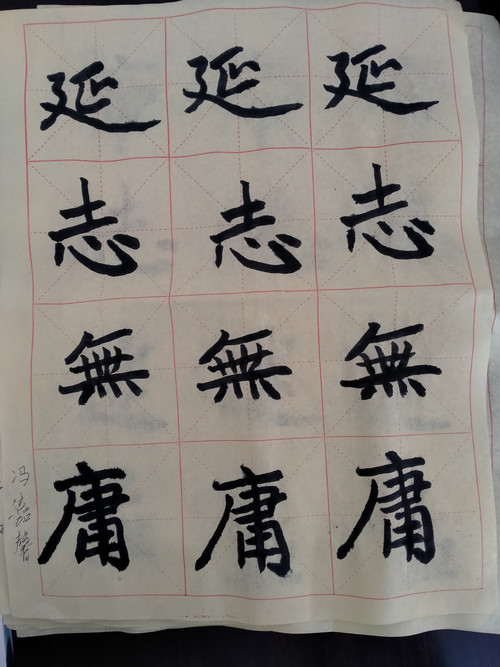 延延延
志志志
無無無
庸庸庸
冯